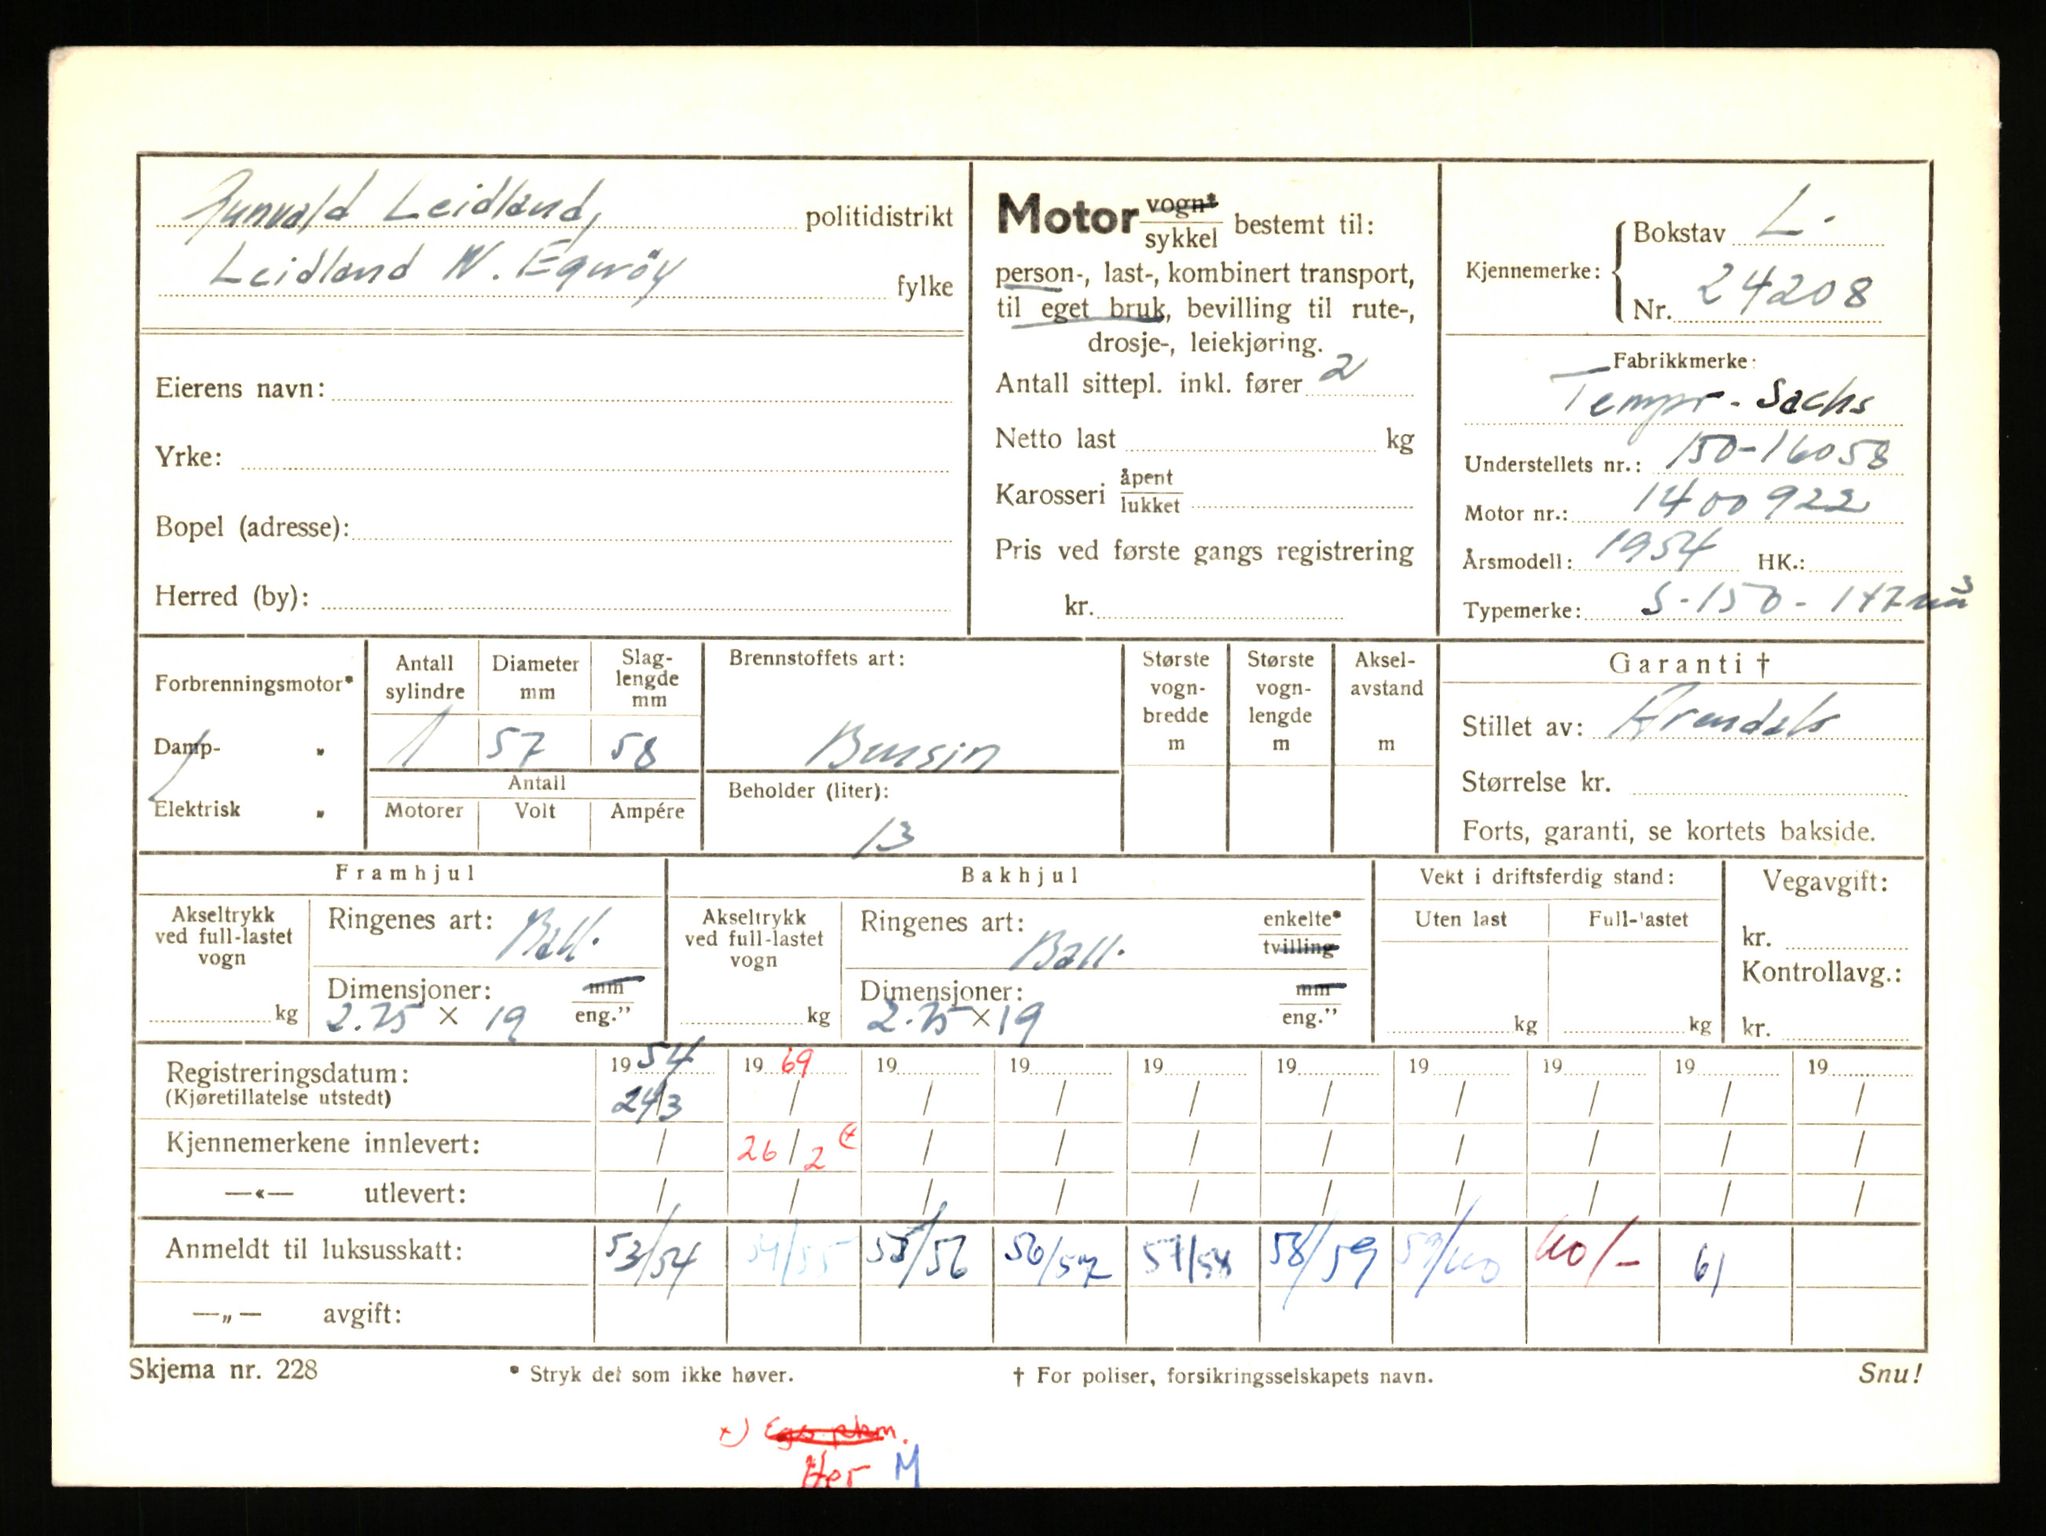 Gunvald Leidland, politidistrikt
Leidland N. Egerøy fylke
Eierens navn:
Yrke:
Bopel (adresse):
Herred (by):
Motor vogn* sykkel bestemt til:
person-, last-, kombinert transport,
til eget bruk, bevilling til rute-,
drosje-, leiekjøring.
Antall sittepl. inkl. fører 2
Netto last kg
Karosseri åpent lukket
Pris ved første gangs registrering
kr.
Kjennemerke: Bokstav L-
Nr. 24208
Fabrikkmerke:
Tempo - Sachs
Understellets nr.: 150-16058
Motor nr.: 1400922
Årsmodell: 1954 HK.:
Typemerke: S-150 - 147
Forbrenningsmotor*
Damp- "
Elektrisk "
Antall sylindre
Diameter mm
Slag-lengde mm
1 57 58
Antall
Motorer Volt Ampére
Brennstoffets art:
Bensin
Beholder (liter):
13
Største vogn-bredde m
Største vogn-lengde m
Aksel-avstand m
Garanti †
Stillet av: Arendals
Størrelse kr.
Forts, garanti, se kortets bakside.
Framhjul
Akseltrykk ved full-lastet vogn
kg
Ringenes art: Ball.
Dimensjoner: mm eng."
2.75 × 19
Bakhjul
Akseltrykk ved full-lastet vogn
kg
Ringenes art: Ball. enkelte* tvilling
Dimensjoner: mm eng."
2.75 × 19
Vekt i driftsferdig stand:
Uten last Full-lastet
kg kg
Vegavgift:
kr.
Kontrollavg.:
kr.
Registreringsdatum: 19 54 19 69 19 19 19 19 19 19 19 19
(Kjøretillatelse utstedt) 24/3 / / / / / / / / /
Kjennemerkene innlevert: / 26/2 x) / / / / / / / /
—«— utlevert: / / / / / / / / / /
Anmeldt til luksusskatt: 53/54 54/55 55/56 56/57 57/58 58/59 59/60 60/- 61
—„— avgift:
Skjema nr. 228
* Stryk det som ikke høver.
† For poliser, forsikringsselskapets navn.
Snu!
x)
M